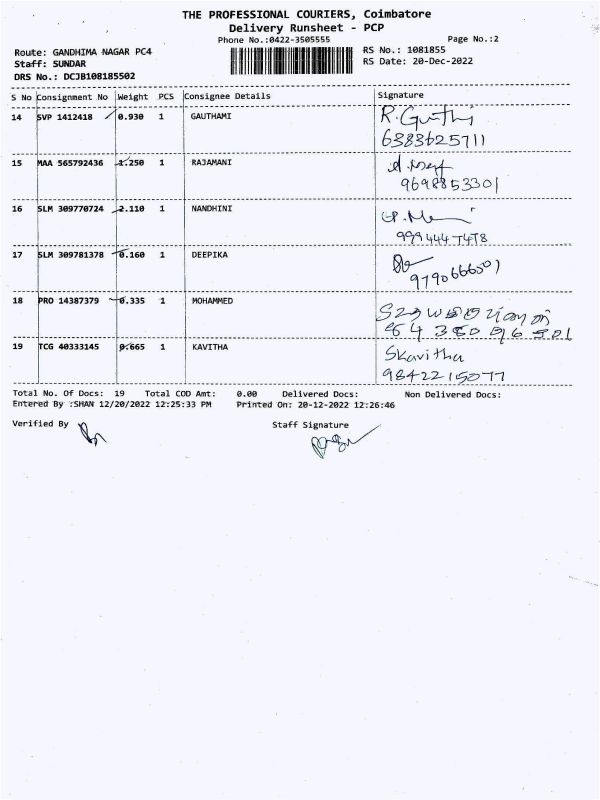 THE PROFESSIONAL COURIERS, Coimbatore
Delivery Runsheet - PCP
Phone No.:0422-3505555 Page No.:2
Route: GANDHIMA NAGAR PC4 RS No.: 1081855
Staff: SUNDAR RS Date: 20-Dec-2022
DRS No.: DCJB108185502
S No Consignment No Weight PCS Consignee Details Signature
14 SVP 1412418 0.930 1 GAUTHAMI
6383625711
15 MAA 565792436 1.250 1 RAJAMANI
9698853301
16 SLM 309770724 2.110 1 NANDHINI
9994447478
17 SLM 309781378 0.160 1 DEEPIKA
9790666501
18 PRO 14387379 0.335 1 MOHAMMED
19 TCG 40333145 0.665 1 KAVITHA Skavitha
9842215077
Total No. Of Docs: 19 Total COD Amt: 0.00 Delivered Docs: Non Delivered Docs:
Entered By :SHAN 12/20/2022 12:25:33 PM Printed On: 20-12-2022 12:26:46
Verified By Staff Signature